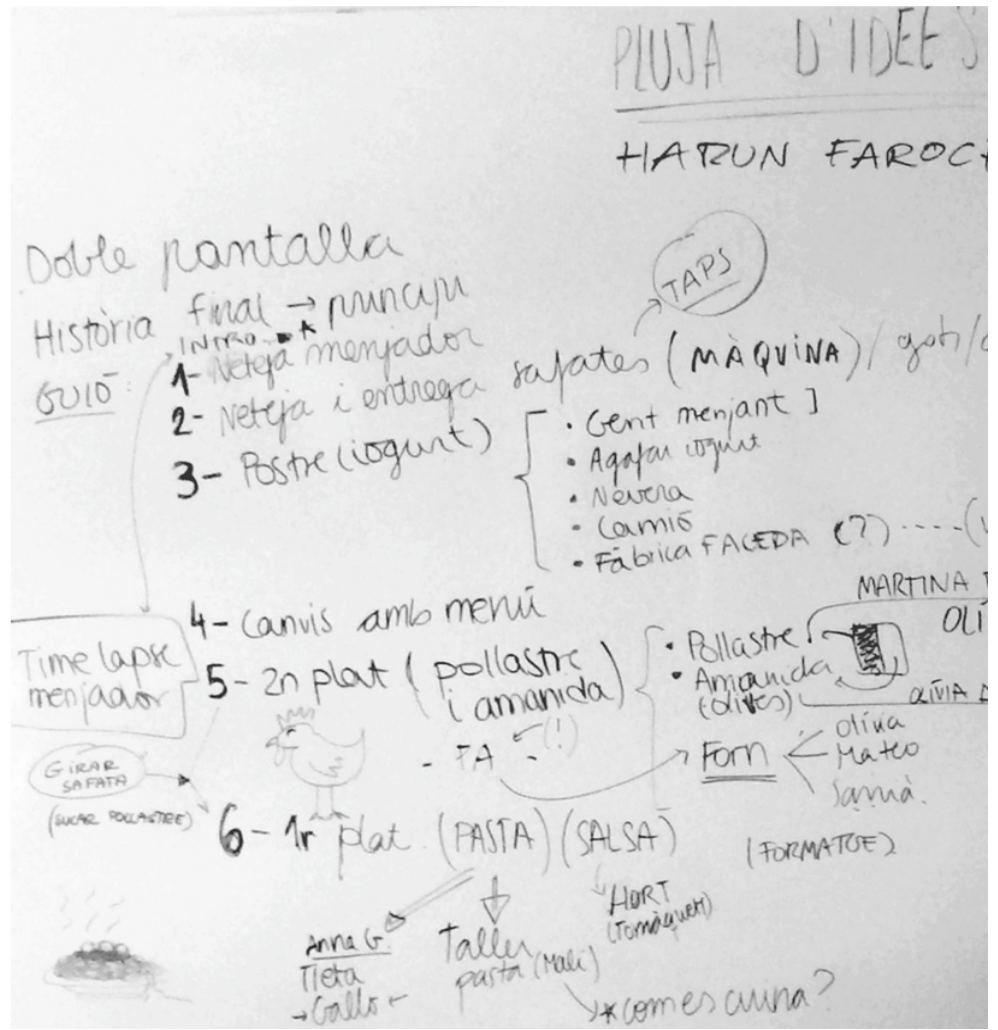 PLUJA D'IDEES
HARUN FAROC
Doble pantalla
TAPS
Història final → principi
INTRO
GUIÓ: 1- Neteja menjador
2- Neteja i entrega safates (MÀQUINA) / gots/
3- Postre (iogurt)
• Gent menjant ]
• Agafar iogurt
• Nevera
• Camió
• Fàbrica FAGEDA (?) ----- (
Time lapse
menjador
4- Canvis amb menú
5- 2n plat (pollastre
i amanida)
MARTINA
OLI
• Pollastre
• Amanida
(olives)
OLÍVIA
- PA - (!)
Forn
Olívia
Mateo
GIRAR
SAFATA
(SUCAR POLLASTRE)
6- 1r plat. (PASTA) (SALSA)
(FORMATGE)
HORT
(Tomàquet)
Anna G.
Tieta
→ Gallo ←
Taller
pasta (Mali)
*com es cuina?